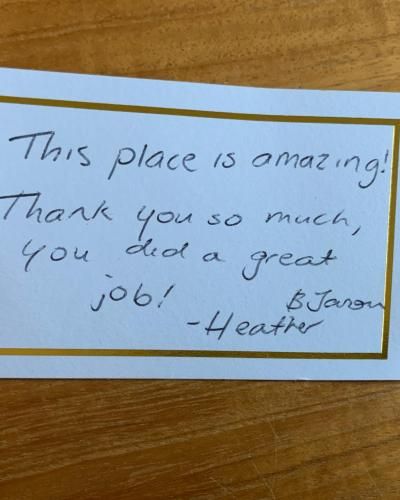 This place is amazing!
Thank you so much,
you did a great
job!
B Jason
-Heather